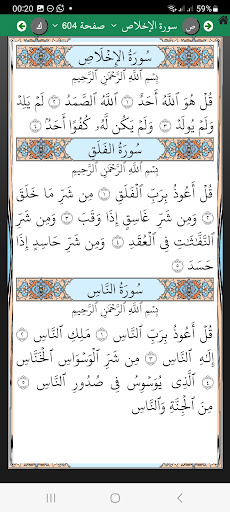 00:20 59%
ص سورة الإخلاص صفحة 604 ك
سُورَةُ الإِخْلَاصِ
بِسْمِ اللَّهِ الرَّحْمَٰنِ الرَّحِيمِ
قُلْ هُوَ ٱللَّهُ أَحَدٌ ١ ٱللَّهُ ٱلصَّمَدُ ٢ لَمْ يَلِدْ
وَلَمْ يُولَدْ ٣ وَلَمْ يَكُن لَّهُۥ كُفُوًا أَحَدٌۢ ٤
سُورَةُ الفَلَقِ
بِسْمِ اللَّهِ الرَّحْمَٰنِ الرَّحِيمِ
قُلْ أَعُوذُ بِرَبِّ ٱلْفَلَقِ ١ مِن شَرِّ مَا خَلَقَ
٢ وَمِن شَرِّ غَاسِقٍ إِذَا وَقَبَ ٣ وَمِن شَرِّ
ٱلنَّفَّٰثَٰتِ فِى ٱلْعُقَدِ ٤ وَمِن شَرِّ حَاسِدٍ إِذَا
حَسَدَ ٥
سُورَةُ النَّاسِ
بِسْمِ اللَّهِ الرَّحْمَٰنِ الرَّحِيمِ
قُلْ أَعُوذُ بِرَبِّ ٱلنَّاسِ ١ مَلِكِ ٱلنَّاسِ ٢
إِلَٰهِ ٱلنَّاسِ ٣ مِن شَرِّ ٱلْوَسْوَاسِ ٱلْخَنَّاسِ
٤ ٱلَّذِى يُوَسْوِسُ فِى صُدُورِ ٱلنَّاسِ ٥
مِنَ ٱلْجِنَّةِ وَٱلنَّاسِ